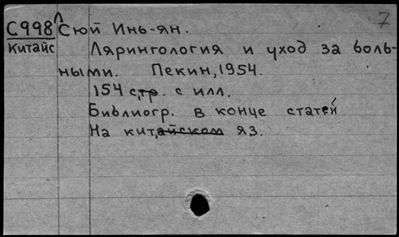 7
С998 Сюй Инь-ян.
Китайс Лярингология и уход за боль-
ными. Пекин, 1954.
154 стр. с илл.
Библиогр. в конце статей
На китайском яз.